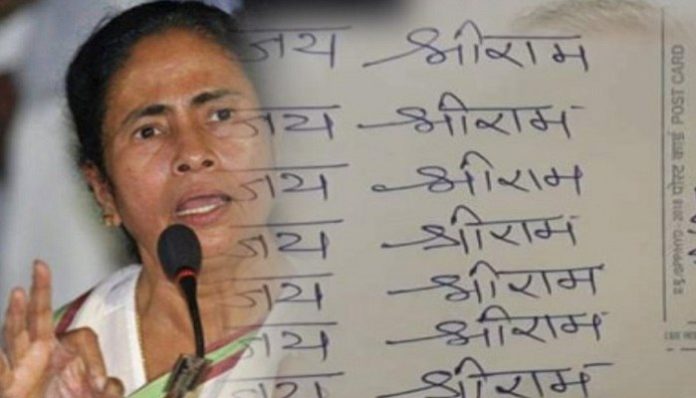 जय श्रीराम
जय श्रीराम
जय श्रीराम
जय श्रीराम
जय श्रीराम
जय श्रीराम
जय श्रीराम
पोस्ट कार्ड POST CARD